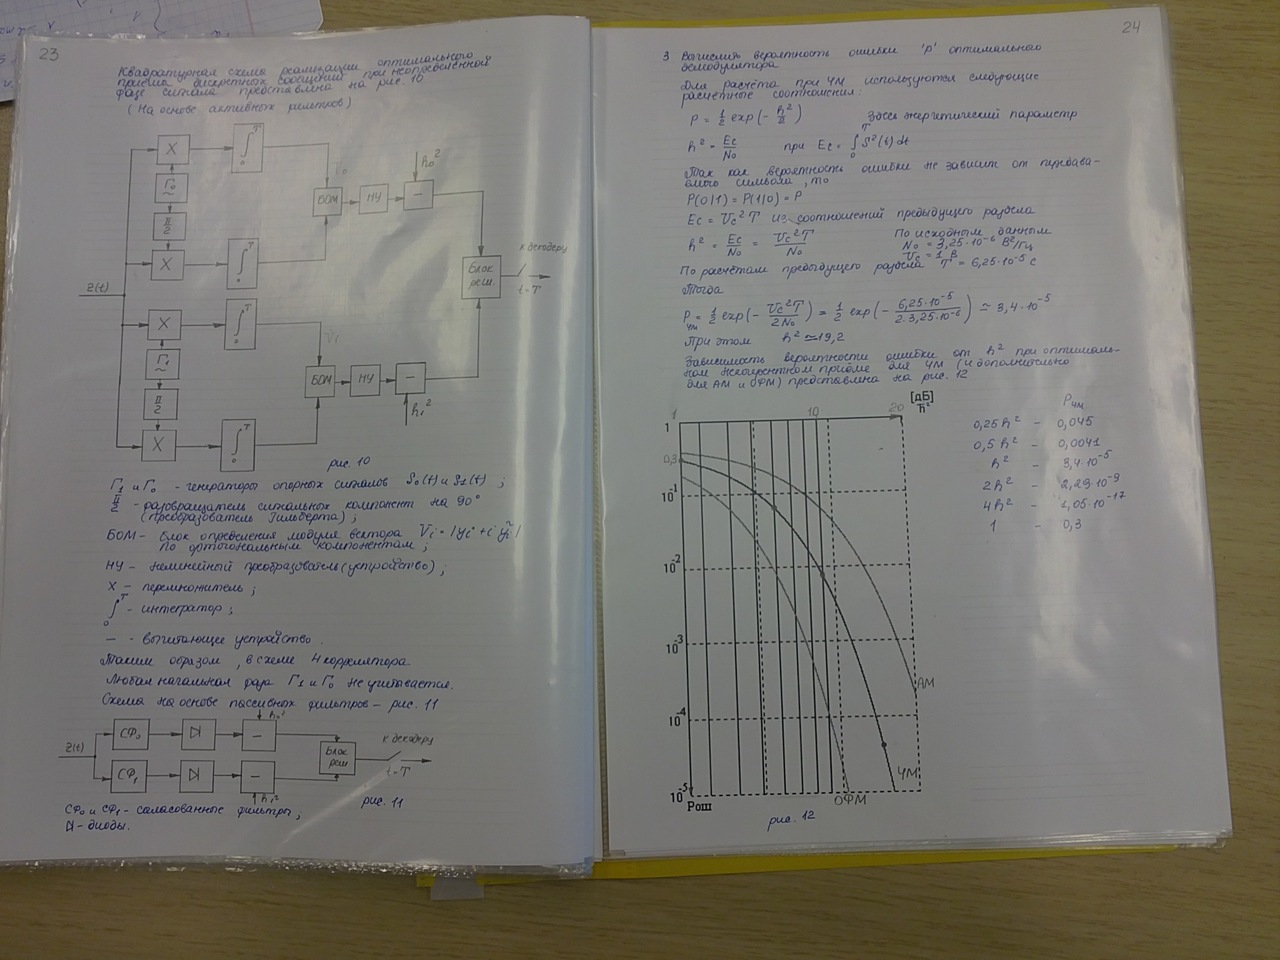 23
Квадратурная схема реализации оптимального
приёма дискретных сообщений при неопределённой
фазе сигнала представлена на рис. 10
(На основе активных фильтров)
X
∫
T
0
Г₀
~
π/2
X
∫
T
0
V₀
БОМ
НУ
h₀²
−
Z(t)
Блок
реш.
к декодеру
t-T
X
∫
T
0
Г₁
~
π/2
X
∫
T
0
V₁
БОМ
НУ
−
h₁²
рис. 10
Г₁ и Г₀ - генераторы опорных сигналов S₀(t) и S₁(t) ;
π/2 - фазовращатель сигнальных компонент на 90°
(преобразователь Гильберта) ;
БОМ - Блок определения модуля вектора Vᵢ = |yᵢ + i ỹᵢ|
по ортогональным компонентам ;
НУ - нелинейный преобразователь (устройство) ;
X - перемножитель ;
∫ - интегратор ;
T
0
− - вычитающее устройство .
Таким образом , в схеме 4 коррелятора
Любая начальная фаза Г₁ и Г₀ не учитывается.
Схема на основе пассивных фильтров - рис. 11
Z(t)
СФ₀
−
h₀²
Блок
реш
к декодеру
t-T
СФ₁
−
h₁²
рис. 11
СФ₀ и СФ₁ - согласованные фильтры ;
- диоды.
24
3 Вычислить вероятность ошибки 'p' оптимального
демодулятора
Для расчёта при ЧМ используются следующие
расчётные соотношения :
P = 1/2 exp(- h²/2) Здесь энергетический параметр
h² = Ec/N₀ при Ec = ∫₀ᵀ S²(t) dt
Так как вероятность ошибки не зависит от передава-
емого символа , то
P(0|1) = P(1|0) = P
Ec = Vc²T из соотношений предыдущего раздела
h² = Ec/N₀ = Vc²T/N₀ По исходным данным
N₀ = 3,25·10⁻⁶ В²/Гц
Vc = 1 В
По расчётам предыдущего раздела T = 6,25·10⁻⁵ с
Тогда
Pчм = 1/2 exp(- Vc²T/2N₀) = 1/2 exp(- 6,25·10⁻⁵/2·3,25·10⁻⁶) ≃ 3,4·10⁻⁵
При этом h² ≃ 19,2
Зависимость вероятности ошибки от h² при оптималь-
ном некогерентном приёме для ЧМ (и дополнительно
для АМ и ОФМ) представлена на рис. 12
1 10 20 [дБ]
h²
1
0,3
10⁻¹
10⁻²
10⁻³
10⁻⁴
10⁻⁵
АМ
ЧМ
ОФМ
Рош
рис. 12
Pчм
0,25h² - 0,045
0,5h² - 0,0041
h² - 3,4·10⁻⁵
2h² - 2,29·10⁻⁹
4h² - 1,05·10⁻¹⁷
1 - 0,3